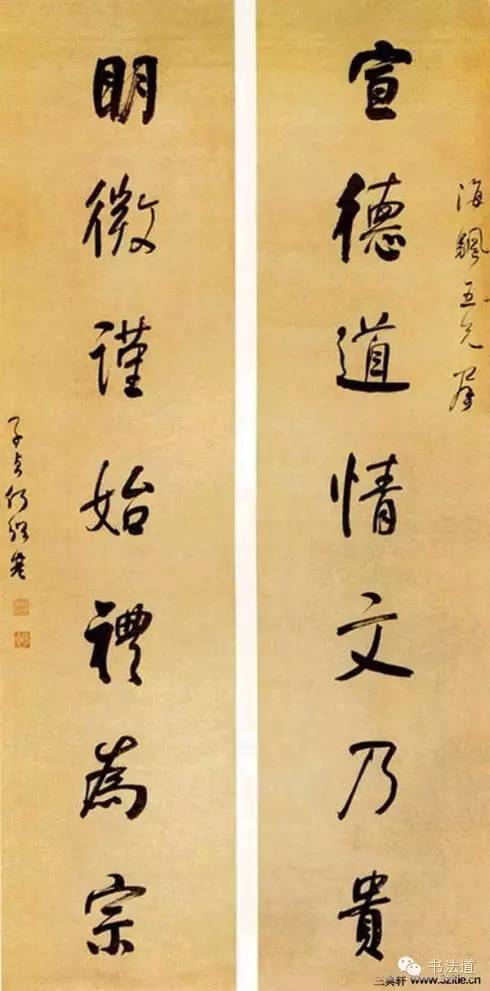 海颿五兄
宣德道情文乃貴
明微謹始禮為宗
子貞何紹基
书法道
www.3zitie.cn